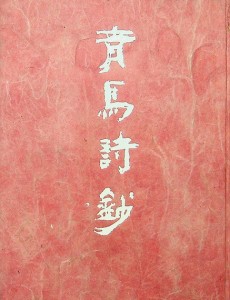 青馬詩鈔